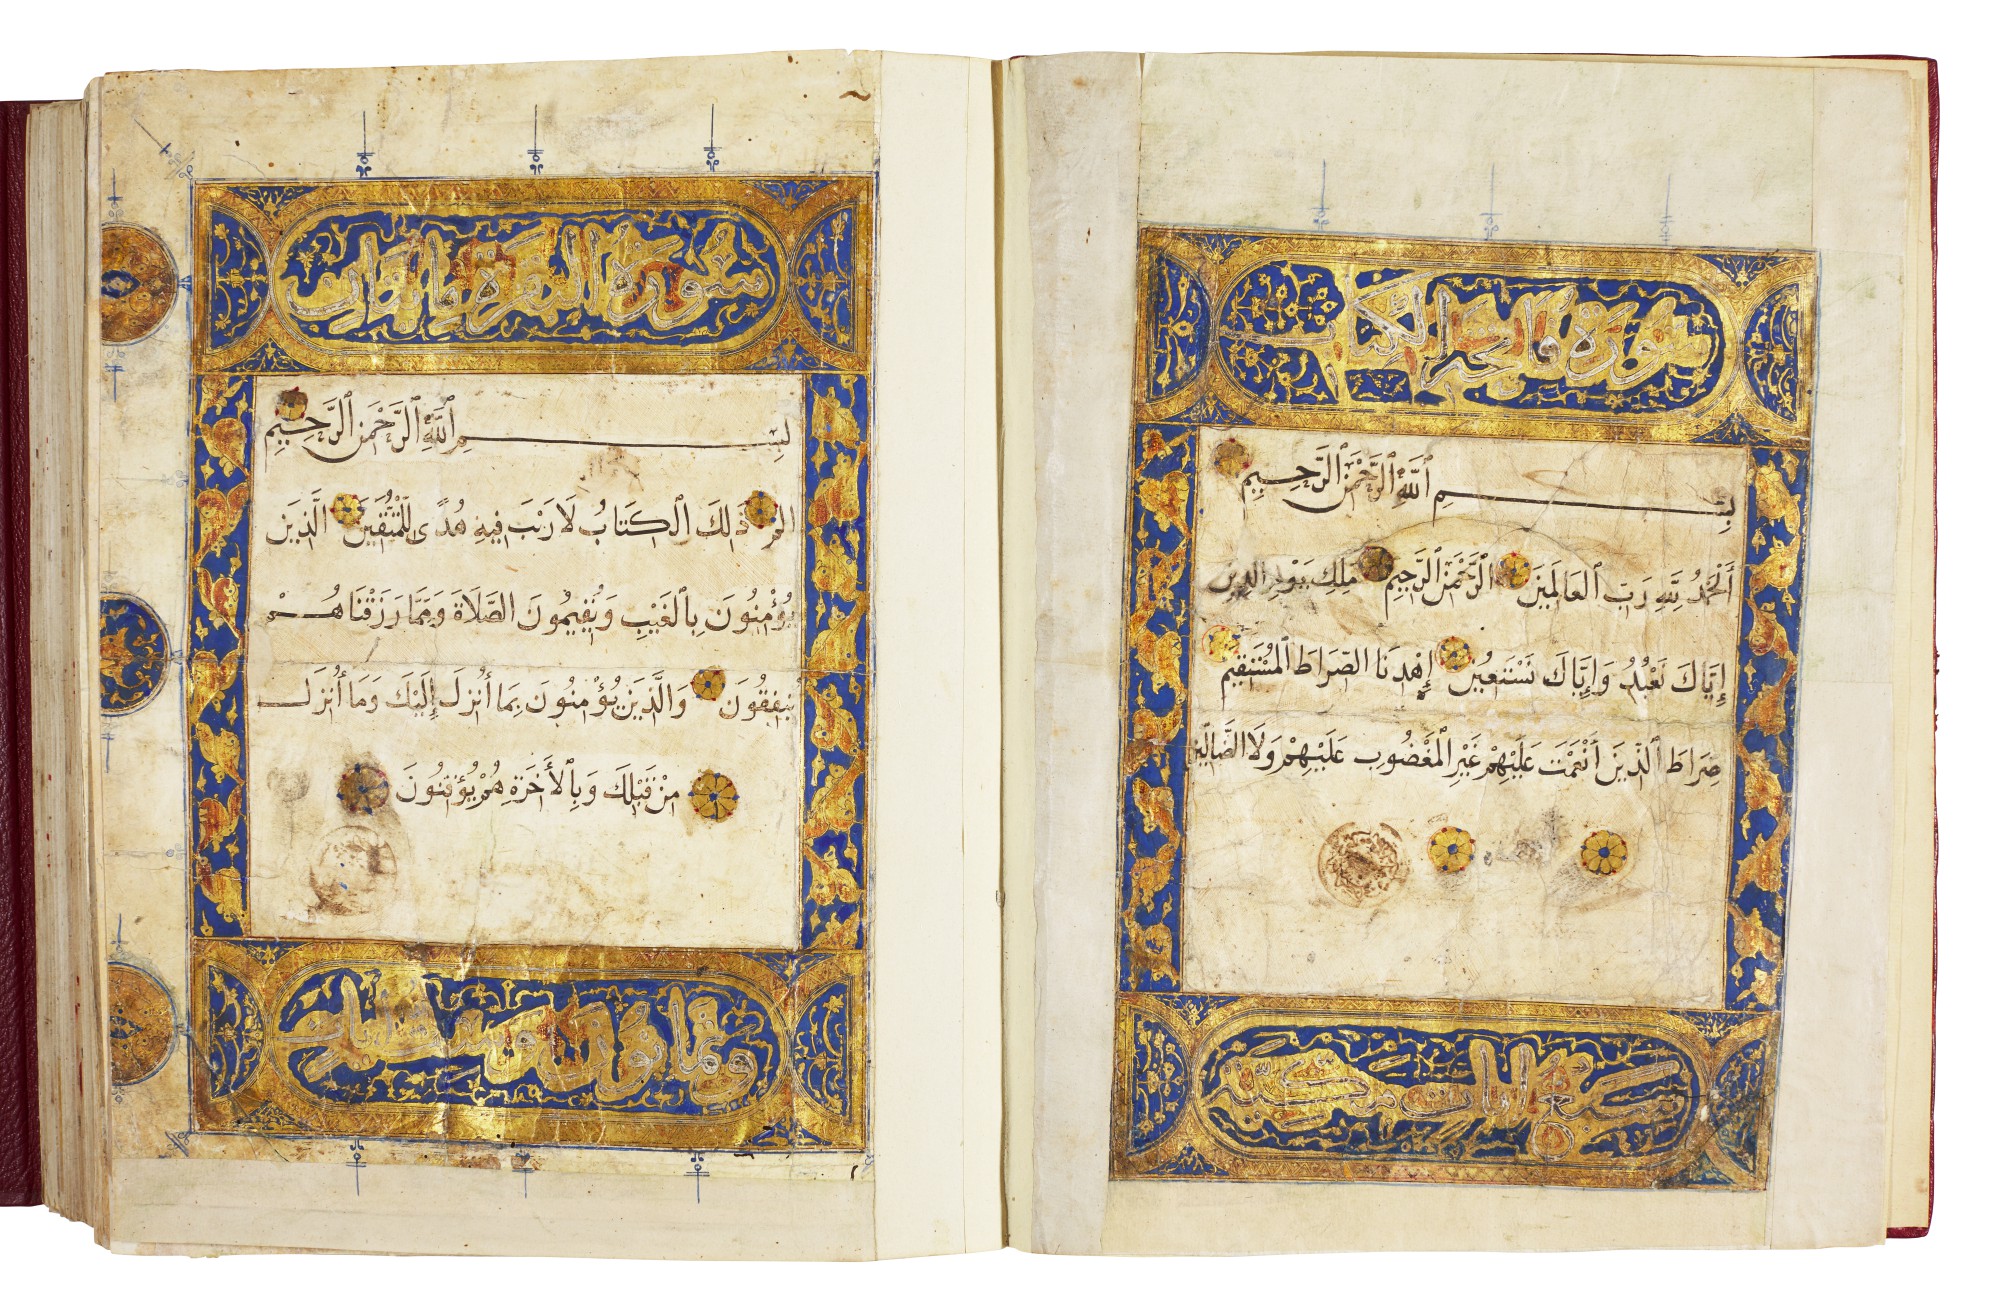 سورة فاتحة الكتاب
بِسْمِ ٱللَّهِ ٱلرَّحْمَنِ ٱلرَّحِيمِ
اَلْحَمْدُ لِلَّهِ رَبِّ ٱلْعَالَمِينَ ٱلرَّحْمَنِ ٱلرَّحِيمِ مَلِكِ يَوْمِ الدِّينِ
إِيَّاكَ نَعْبُدُ وَإِيَّاكَ نَسْتَعِينُ إِهْدِنَا الصِّرَاطَ ٱلْمُسْتَقِيمَ
صِرَاطَ ٱلَّذِينَ أَنْعَمْتَ عَلَيْهِمْ غَيْرِ ٱلْمَغْضُوبِ عَلَيْهِمْ وَلَا الضَّالِّينَ
سبع ايات مكية
سورة البقرة مايتان
بِسْمِ ٱللَّهِ ٱلرَّحْمَنِ ٱلرَّحِيمِ
الم ذَالِكَ ٱلْكِتَابُ لَا رَيْبَ فِيهِ هُدًى لِلْمُتَّقِينَ الَّذِينَ
يُؤْمِنُونَ بِٱلْغَيْبِ وَيُقِيمُونَ الصَّلَاةَ وَمِمَّا رَزَقْنَاهُمْ
يُنْفِقُونَ وَالَّذِينَ يُؤْمِنُونَ بِمَا أُنْزِلَ إِلَيْكَ وَمَا أُنْزِلَ
مِنْ قَبْلِكَ وَبِٱلْأَخِرَةِ هُمْ يُوْقِنُونَ
وثمانون وست ايات